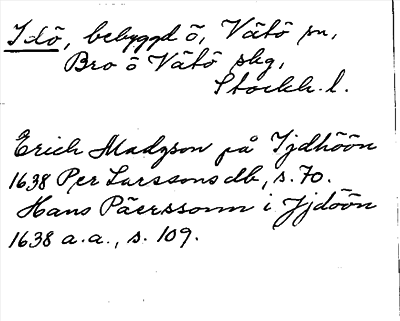 Idö, bebyggd ö, Vätö sn,
Bro o Vätö skg,
Stockh. l.
Erich Madzson på Ijdhöön
1638 Per Larssons db, s. 70.
Hans Päerssonn i Jjdöön
1638 a.a., s. 109.